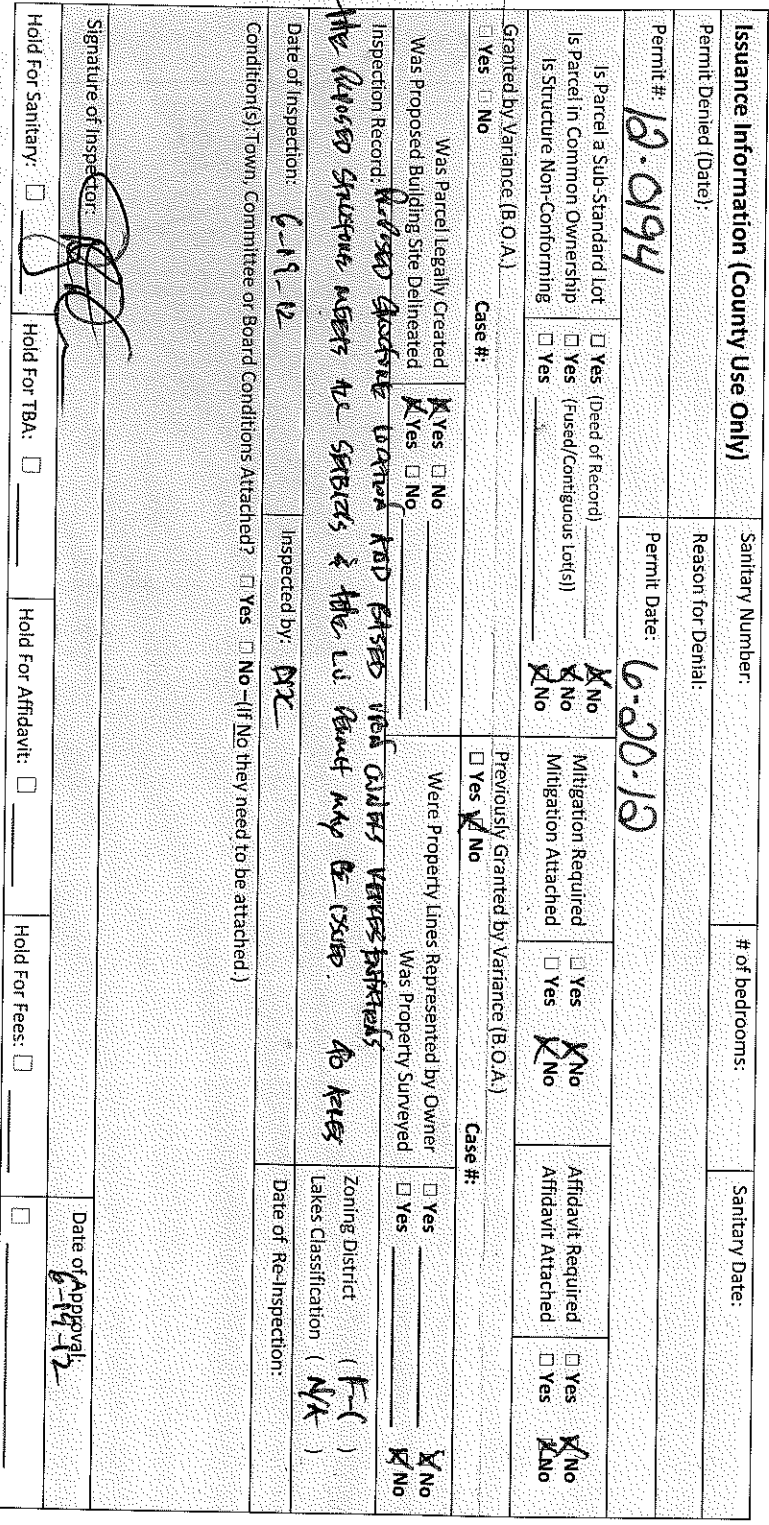 Issuance Information (County Use Only)
Sanitary Number:
# of bedrooms:
Sanitary Date:
Permit Denied (Date):
Reason for Denial:
Permit #: 12-0194
Permit Date: 6-20-12
Is Parcel a Sub-Standard Lot ☐ Yes (Deed of Record) ☒ No
Is Parcel in Common Ownership ☐ Yes (Fused/Contiguous Lot(s)) ☒ No
Is Structure Non-Conforming ☐ Yes ☒ No
Mitigation Required ☐ Yes ☒ No
Mitigation Attached ☐ Yes ☒ No
Affidavit Required ☐ Yes ☒ No
Affidavit Attached ☐ Yes ☒ No
Granted by Variance (B.O.A.)
☐ Yes ☐ No Case #:
Previously Granted by Variance (B.O.A.)
☐ Yes ☒ No Case #:
Was Parcel Legally Created ☒ Yes ☐ No
Was Proposed Building Site Delineated ☒ Yes ☐ No
Were Property Lines Represented by Owner ☐ Yes ☒ No
Was Property Surveyed ☐ Yes ☒ No
Inspection Record: Proposed structure location AND BASED UPON OWNERS REPRESENTATIONS
the PROPOSED STRUCTURE MEETS ALL SETBACKS & the LU Permit may BE ISSUED. 40 ACRES
Zoning District ( F-1 )
Lakes Classification ( N/A )
Date of Inspection: 6-19-12
Inspected by:
Date of Re-Inspection:
Condition(s): Town, Committee or Board Conditions Attached? ☐ Yes ☐ No –(If No they need to be attached.)
Signature of Inspector:
Date of Approval:
6-19-12
Hold For Sanitary: ☐
Hold For TBA: ☐
Hold For Affidavit: ☐
Hold For Fees: ☐
☐